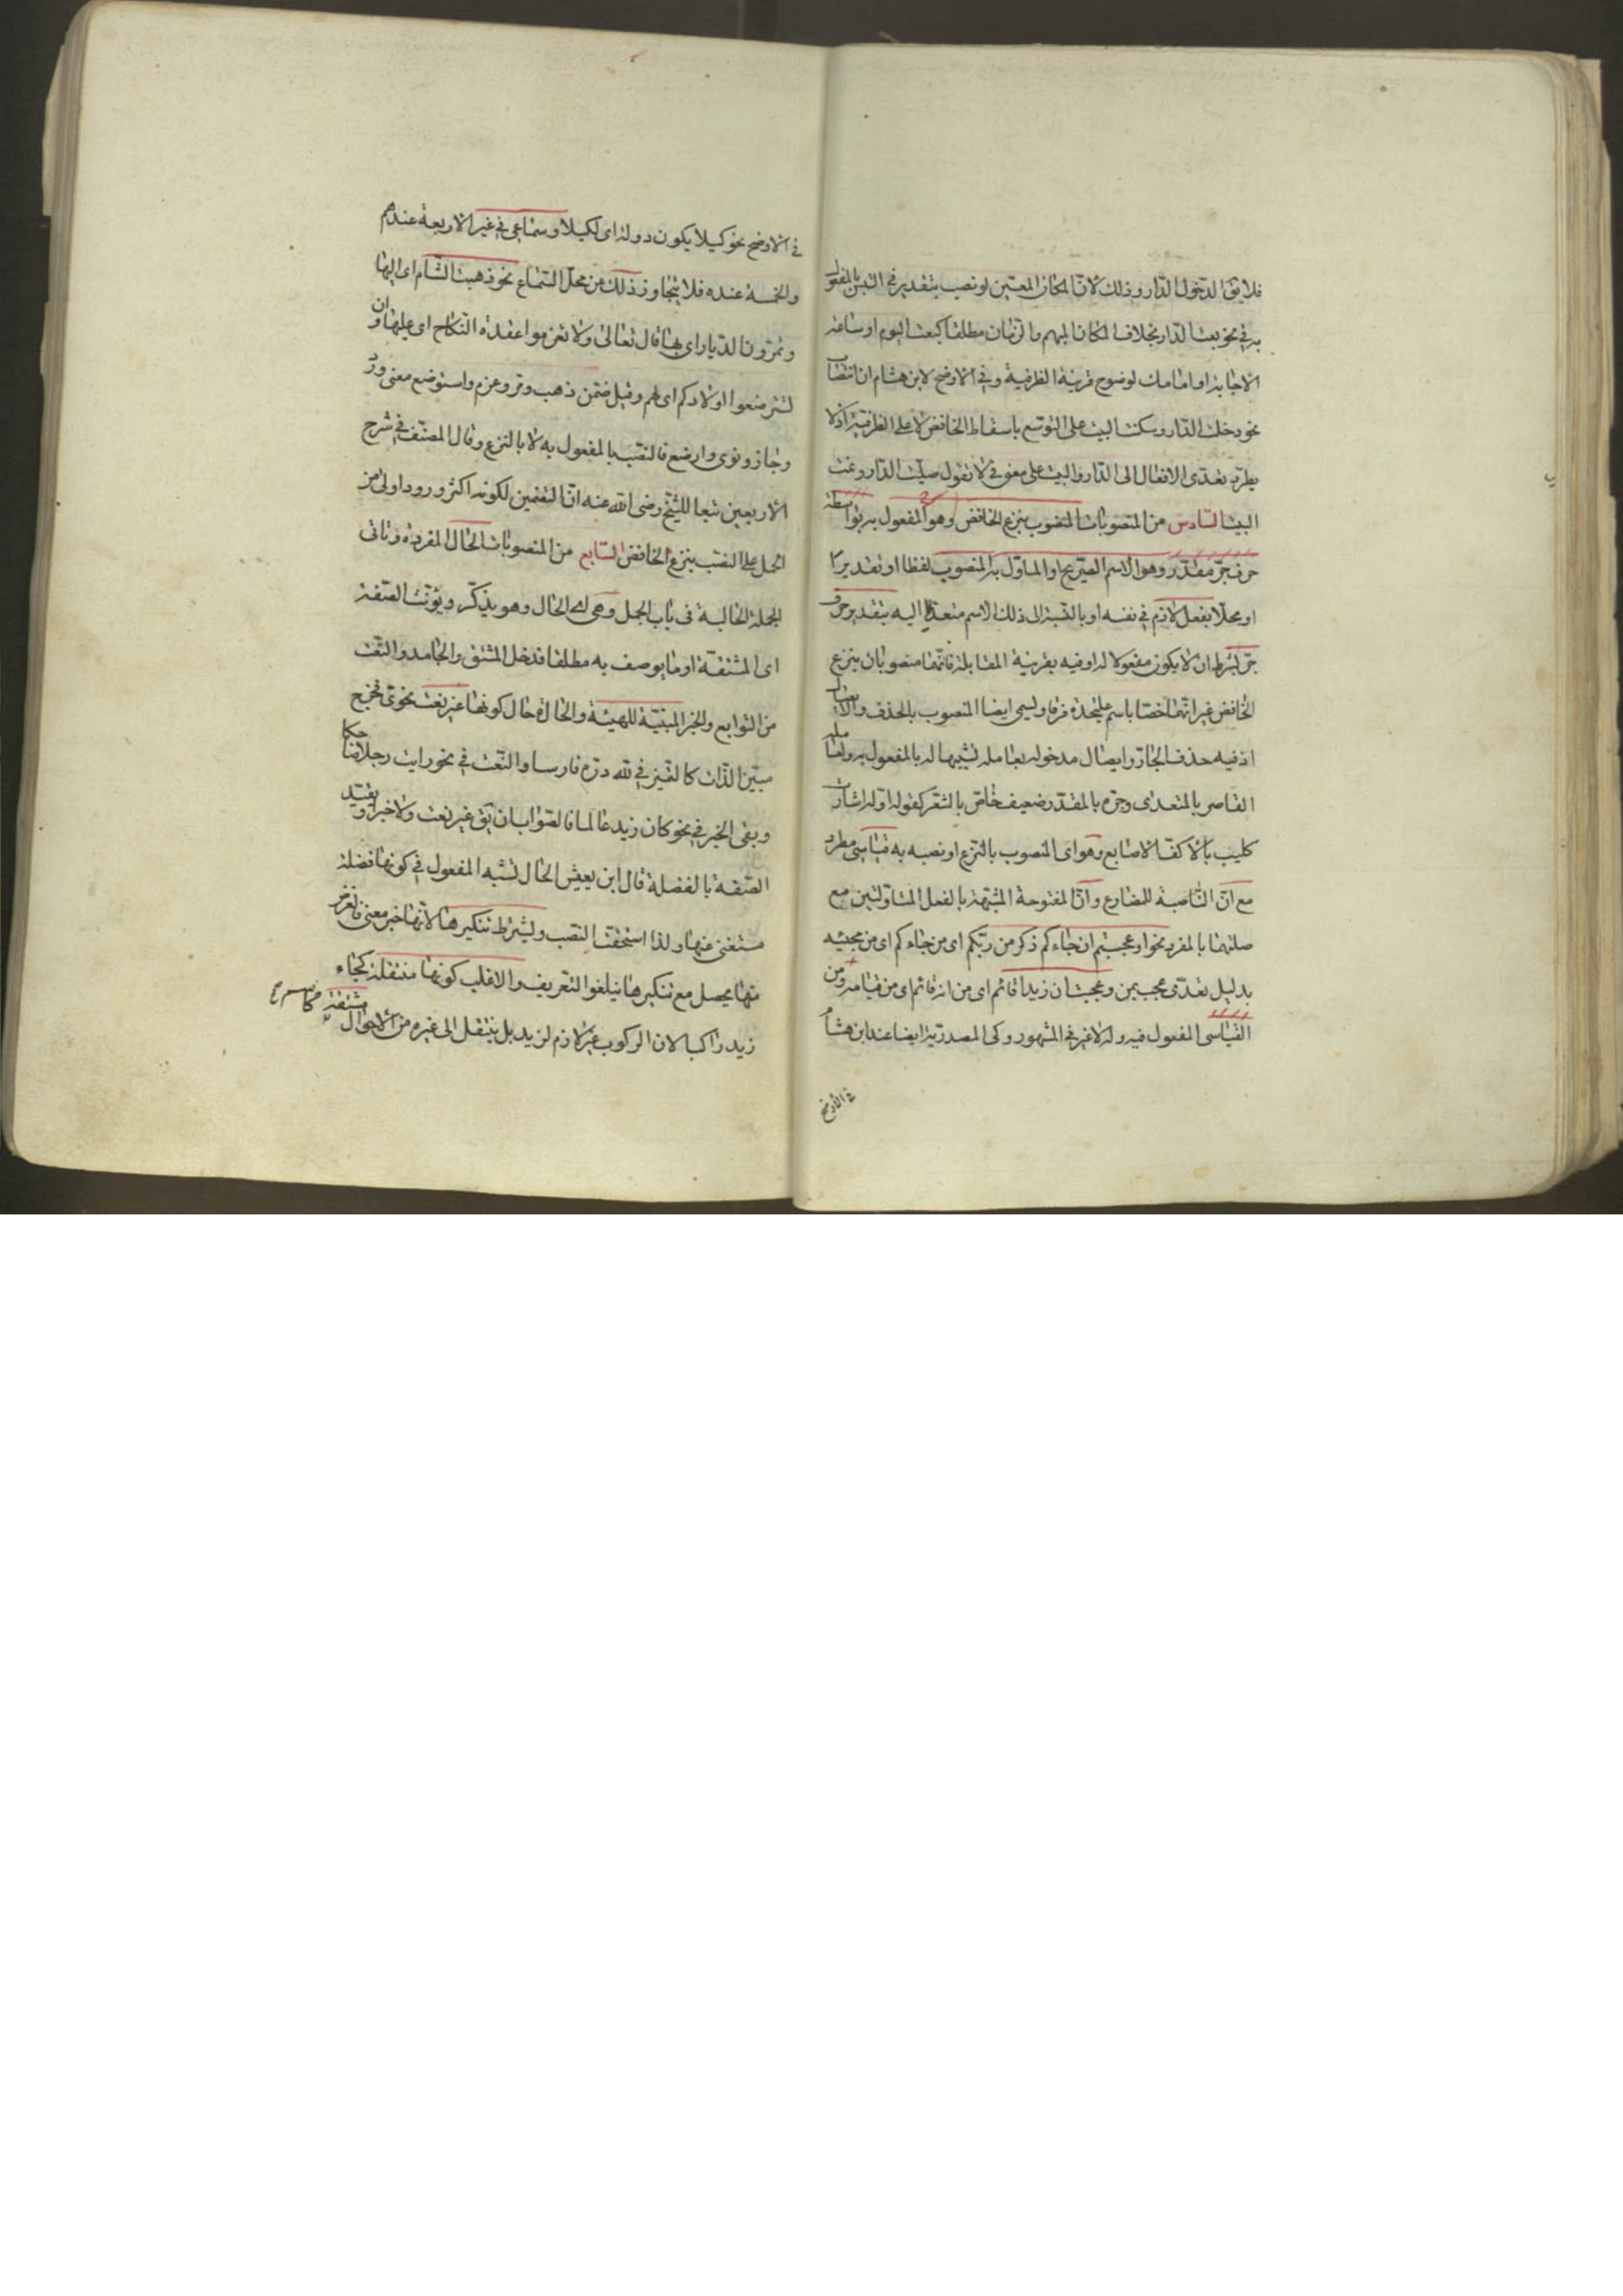 فلا يقال دخول الدار وذلك لان المكان المعين لو نصب بتقدير في التبس بالمفعول
به في نحو بعت الدار بخلاف المكان المبهم والزمان مطلقا كبعت اليوم او ساعة
الاجابة او امامك لوضوح قرينة الظرفية وفي الاوضح لابن هشام ان انتصاب
نحو دخلت الدار وسكنت البيت على التوسع باسقاط الخافض لا على الظرفية اذ لا
يطرد تعدى الافعال الى الدار والبيت على معنى في لا تقول صليت الدار ونمت
البيت السادس من المنصوبات المنصوب بنزع الخافض وهو المفعول به بواسطة
حرف جر مقدر وهو الاسم الصريح او الماول به المنصوب لفظا او تقديرا
او محلا بفعل لازم في نفسه او بالنسبة الى ذلك الاسم متعديا اليه بتقدير حرف
جر بشرط ان لا يكون مفعولا له او فيه بقرينة المقابلة فانهما منصوبان بنزع
الخافض غير انهما خصا باسم عليحدة فرقا ويسمى ايضا المنصوب بالحذف والايصال
اذ فيه حذف الجار وايصال مدخوله بعامله تشبيها له بالمفعول به ولعامله
القاصر بالمتعدى وجره بالمقدر ضعيف خاص بالشعر كقوله اوله اشارت
كليب بالاكف الاصابع وهو اى المنصوب بالنزع او نصبه به قياسى مطرد
مع ان الناصبة للمضارع وان المفتوحة المشبهة بالفعل المتاولتين مع
صلتهما بالمفرد نحو اوعجبتم ان جاءكم ذكر من ربكم اى من جاءكم اى من مجيئه
بدليل تعدى عجب بمن وعجبت ان زيدا قائم اى من انه قائم اى من قيامه ومن
القياسى المفعول فيه وله لا غير في المشهور وكى المصدرية ايضا عند ابن هشام
في الاوضح
في الاوضح نحو كيلا يكون دولة اى لكيلا وسماعى في غير الاربعة عندهم
والخمسة عنده فلا يتجاوز ذلك من محل السماع نحو ذهبت الشام اى اليها
وتمرون الديار اى بها قال تعالى ولا تعزموا عقدة النكاح اى عليها وان
تسترضعوا اولادكم اى لهم وقيل ضمن ذهب ومر وعزم واسترضع معنى ورد
وجاز ونوى وارضع فالنصب بالمفعول به لا بالنزع وقال المصنف في شرح
الاربعين تبعا للشيخ رضى الله عنه ان التضمين لكونه اكثر ورودا اولى من
الحمل على النصب بنزع الخافض السابع من المنصوبات الحال المفردة وتاتى
الجملة الحالية فى باب الجمل وهى اى الحال وهو يذكر ويؤنث الصفة
اى المشتقة او ما يوصف به مطلقا فدخل المشتق والجامد والنعت
من التوابع والخبر المبنية للهيئة والحالة حال كونها غير نعت نحوى فخرج
مبين الذات كالتميز في لله دره فارسا والنعت في نحو رايت رجلا ضاحكا
وبقى الخبر في نحو كان زيد عالما فالصواب ان يق غير نعت ولا خبر او يقيد
الصفة بالفضلة قال ابن يعيش الحال تشبه المفعول في كونها فضلة
مستغنى عنها ولذا استحقت النصب ويشترط تنكيرها لانها خبر معنى فالغرض
منها يحصل مع تنكيرها فيلغوا التعريف والاغلب كونها منتقلة كجاء
زيد راكبا لان الركوب غير لازم لزيد بل ينتقل الى غيره من الاحوال مشتقة